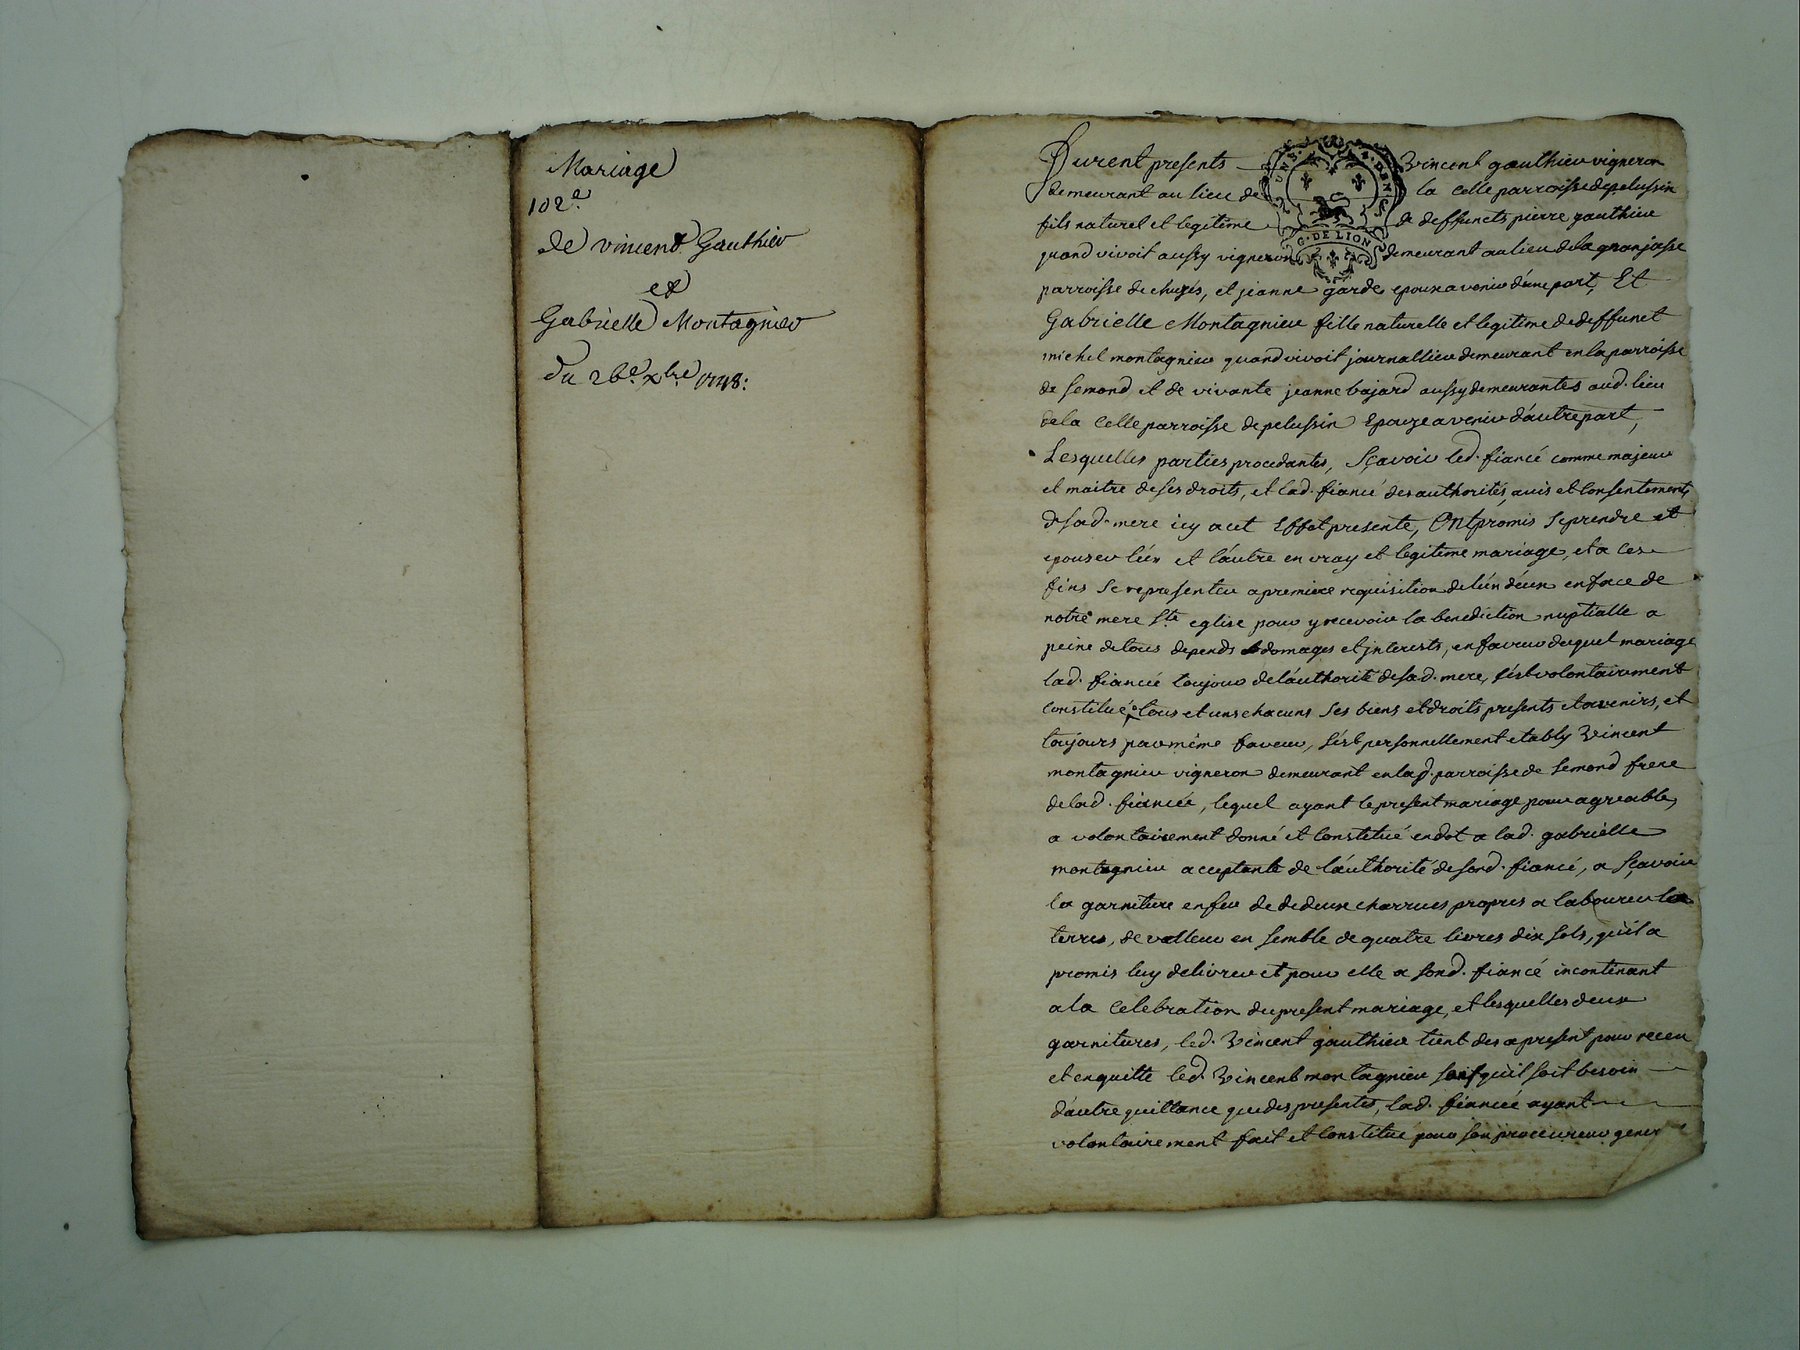 Mariage
102e.
de vincent Gauthier
et
Gabrielle Montagnier
du 26e. xbre 1748:
Furent presents vincent gauthier vigneron
demeurant au lieu de la Celle parroisse de pelussin
fils naturel et legitime de deffuncts pierre gauthier
quand vivoit aussy vigneron demeurant au lieu de la granjasse
parroisse de chuyes, et jeanne garde epoux avenir d'une part, Et
Gabrielle Montagnier fille naturelle et legitime de deffunct
michel montagnier quand vivoit journallier demeurant en la parroisse
de semond et de vivante jeanne bajard aussy demeurantes aud. lieu
de la Celle parroisse de pelussin Epouze avenir d'autre part,
Lesquelles parties procedantes, Sçavoir led. fiancé comme majeur
et maitre de ses droits, et lad. fiancé des authorités, avis et Consentements
de sad. mere icy a cet Effet presente, Ont promis se prendre et
epouser l'un et l'autre en vray et legitime mariage, et a ces
fins se representer a premiere requisition de l'un d'eux en face de
notre mere Ste eglise pour y recevoir la benediction nuptialle a
peine de tous depends domages et jnterests, en faveur duquel mariage
lad. fiancée toujour de l'authorité de sad. mere, s'est volontairement
Constitué tous et uns chacuns ses biens et droits presents et avenirs, et
toujours par même faveur, s'est personnellement etably vincent
montagnier vigneron demeurant en lad. parroisse de semond frere
de lad. fiancée, lequel ayant le present mariage pour agreable,
a volontairement donné et Constitué en dot a lad. gabrielle
montagnier acceptante de l'authorité de sond. fiancé, a Sçavoir
la garniture en feu de de deux charrues propres a labourer les
terres, de valleur en semble de quatre livres dix sols, qu'il a
promis luy delivrer et pour elle a sond. fiancé incontinant
a la Celebration du present mariage, et lesquelles deux
garnitures, led. vincent gauthier tient des apresent pour receu
et en quitte led. vincent montagnier sans qu'il soit besoin
d'autre quittance que des presentes, lad. fiancée ayant
volontairement fait et Constitué pour son procureur gener
G. DE LION